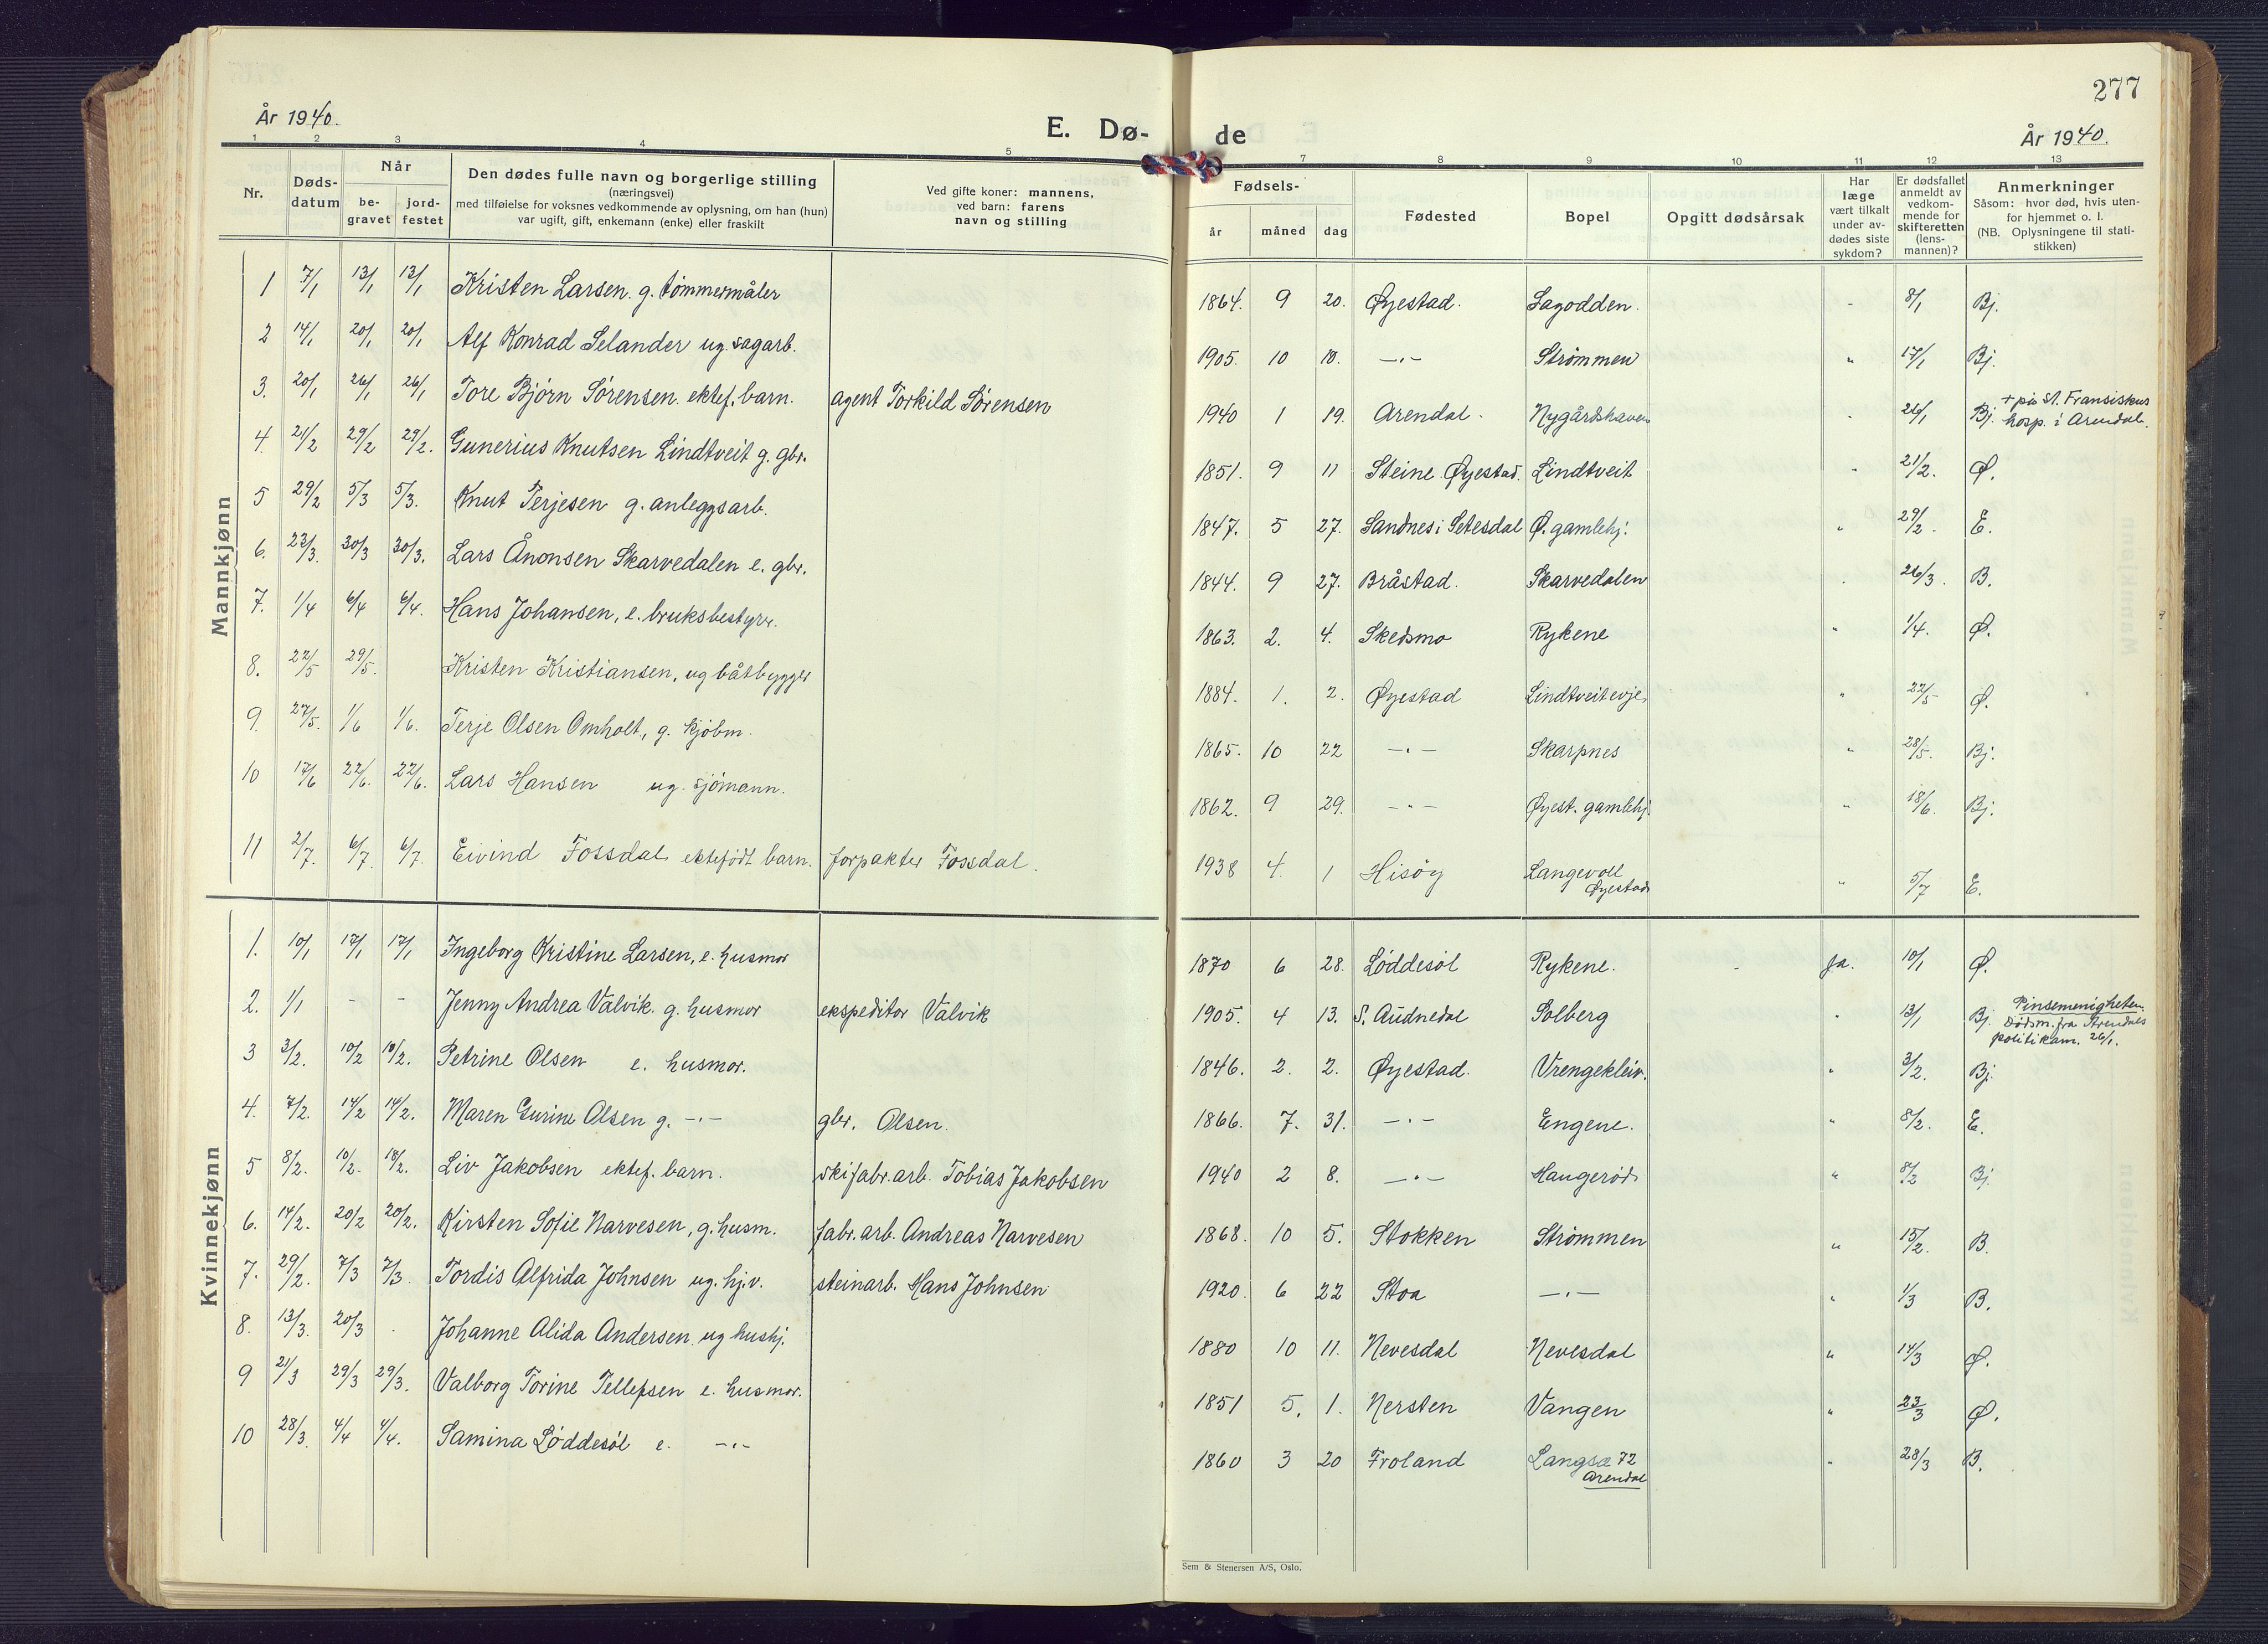 277
År 1940.
E. Dø- de
År 1940.
1 2 3 4 5 7 8 9 10 11 12 13
Nr.
Døds-
datum
Når
be-
gravet
jord-
festet
Den dødes fulle navn og borgerlige stilling
(næringsvei)
med tilføielse for voksnes vedkommende av oplysning, om han (hun)
var ugift, gift, enkemann (enke) eller fraskilt
Ved gifte koner: mannens,
ved barn: farens
navn og stilling
Fødsels-
år måned dag
Fødested
Bopel
Opgitt dødsårsak
Har
læge
vært tilkalt
under av-
dødes siste
sykdom?
Er dødsfallet
anmeldt av
vedkom-
mende for
skifteretten
(lens-
mannen)?
Anmerkninger
Såsom: hvor død, hvis uten-
for hjemmet o. l.
(NB. Oplysningene til stati-
stikken)
Mannkjønn
1 7/1 13/1 13/1 Kristen Larsen. g. tømmermåler 1864. 9 20. Øyestad. Sagodden. - 8/1 Bj.
2 14/1 20/1 20/1 Alf Konrad Selander ug. sagarb. 1905. 10 18. -"- Strømmen " 17/1 Bj.
3. 20/1 26/1 26/1 Tore Bjørn Sørensen. ektef. barn. agent Torkild Sørensen 1940 1 19. Arendal. Nygårdshaven " 26/1 Bj. + på St. Fransiskus
hosp. i Arendal.
4. 21/2 29/2 29/2. Gunerius Knutsen Lindtveit g. gbr. 1851. 9 11 Steine Øyestad. Lindtveit " 21/2. Ø.
5 29/2 5/3 5/3. Knut Terjesen g. anleggsarb. 1847. 5 27. Sandnes i Setesdal Ø. gamlehj. " 29/2. E.
6. 23/3. 30/3 30/3. Lars Ånonsen Skarvedalen e. gbr. 1844. 9 27. Bråstad. Skarvedalen " 26/3. B.
7. 1/4 6/4 6/4. Hans Johansen, e. bruksbestyrer. 1863. 2. 4. Skedsmo Rykene " 1/4. Ø.
8. 22/5 29/5. Kristen Kristiansen, ug båtbygger 1884. 1. 2. Øyestad Lindtveitevje " 22/5 Ø.
9. 27/5. 1/6 1/6. Terje Olsen Omholt, g. kjøbm. 1865. 10 22 -"- Skarpnes " 28/5. Bj.
10 17/6 22/6. 22/6. Lars Hansen ug. sjømann. 1862. 9 29. -"- Øyest. gamlehj. " 18/6. Bj.
11 2/7. 6/7. 6/7. Eivind Fossdal ektefødt barn. forpakter Fossdal. 1938 4. 1 Hisøy Langevoll
Øyestad " 5/7 E.
Kvinnekjønn
1. 10/1 17/1 17/1 Ingeborg Kristine Larsen, e. husmor 1870 6 28. Løddesøl Rykene. - Ja. 10/1 Ø.
2. 1/1 - - Jenny Andrea Valvik. g. husmor ekspeditor Valvik 1905. 4 13. S. Audnedal Solberg " 13/1 Bj. Pinsemenigheten.
Dødsm. fra Arendals
politikam. 26/1.
3 3/2. 10/2 10/2. Petrine Olsen e. husmor. 1846. 2. 2. Øyestad. Vrengekleiv. " 3/2. Bj.
4. 7/2. 14/2 14/2. Maren Gurine Olsen g. -"- gbr. Olsen. 1866. 7. 31. -"- Engene. " 8/2. E.
5 8/2. 10/2. 18/2. Liv Jakobsen ektef. barn. skifabr.arb. Tobias Jakobsen 1940 2 8. -"- Haugerød. " 8/2 Bj.
6. 14/2. 20/2 20/2. Kirsten Sofie Narvesen, g. husm. fabr.arb. Andreas Narvesen 1868. 10 5. Stokken Strømmen " 15/2. B.
7. 29/2. 7/3 7/3. Tordis Alfrida Johnsen ug. hj.v. steinarb. Hans Johnsen 1920. 6 22 Stoa -"- " 1/3 B.
8. 13/3. 20/3 . Johanne Alida Andersen ug hushj. 1880 10 11. Nevesdal Nevesdal " 14/3 Ø.
9 21/3 29/3 29/3. Valborg Torine Tellefsen e. husmor. 1851 5. 1. Nersten Vangen " 23/3 Ø.
10 28/3. 4/4 4/4. Samina Løddesøl e. -"- 1860 3 20 Froland Langsæ 72
Arendal " 28/3 B.
Sem & Stenersen A/S, Oslo.